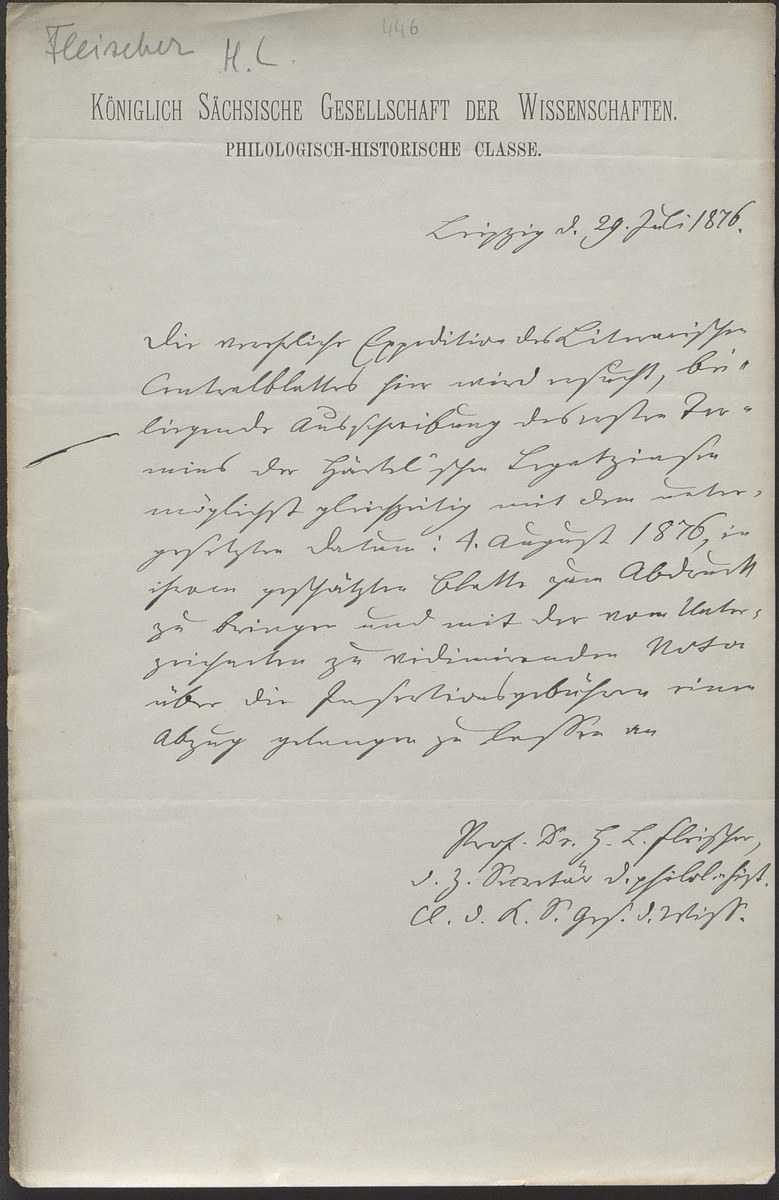 Fleischer H. L.
446
KÖNIGLICH SÄCHSISCHE GESELLSCHAFT DER WISSENSCHAFTEN.
PHILOLOGISCH-HISTORISCHE CLASSE.
Leipzig d. 29. Juli 1876.
Die verehrliche Expedition des Literarischen
Centralblattes hier wird ersucht, bei-
liegende Ausschreibung des ersten Ter-
mins der Härtel'schen Legatzinsen
möglichst gleichzeitig mit dem unter-
gesetzten Datum: 4. August 1876, in
ihrem geschätzten Blatte zum Abdruck
zu bringen und mit der vom Unter-
zeichneten zu vidimirenden Nota
über die Insertionsgebühren einen
Abzug gelangen zu lassen an
Prof. Dr. H. L. Fleischer,
d. Z. Secretär d. philol.-hist.
Cl. d. K. S. Ges. d. Wiss.